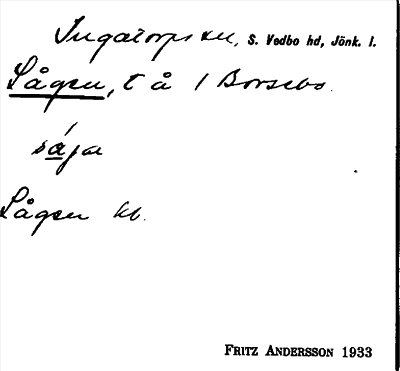 Ingatorps sn, S. Vedbo hd, Jönk. l.
Sågen, t å / Borsebo.
sága
Sågen kb.
FRITZ ANDERSSON 1933